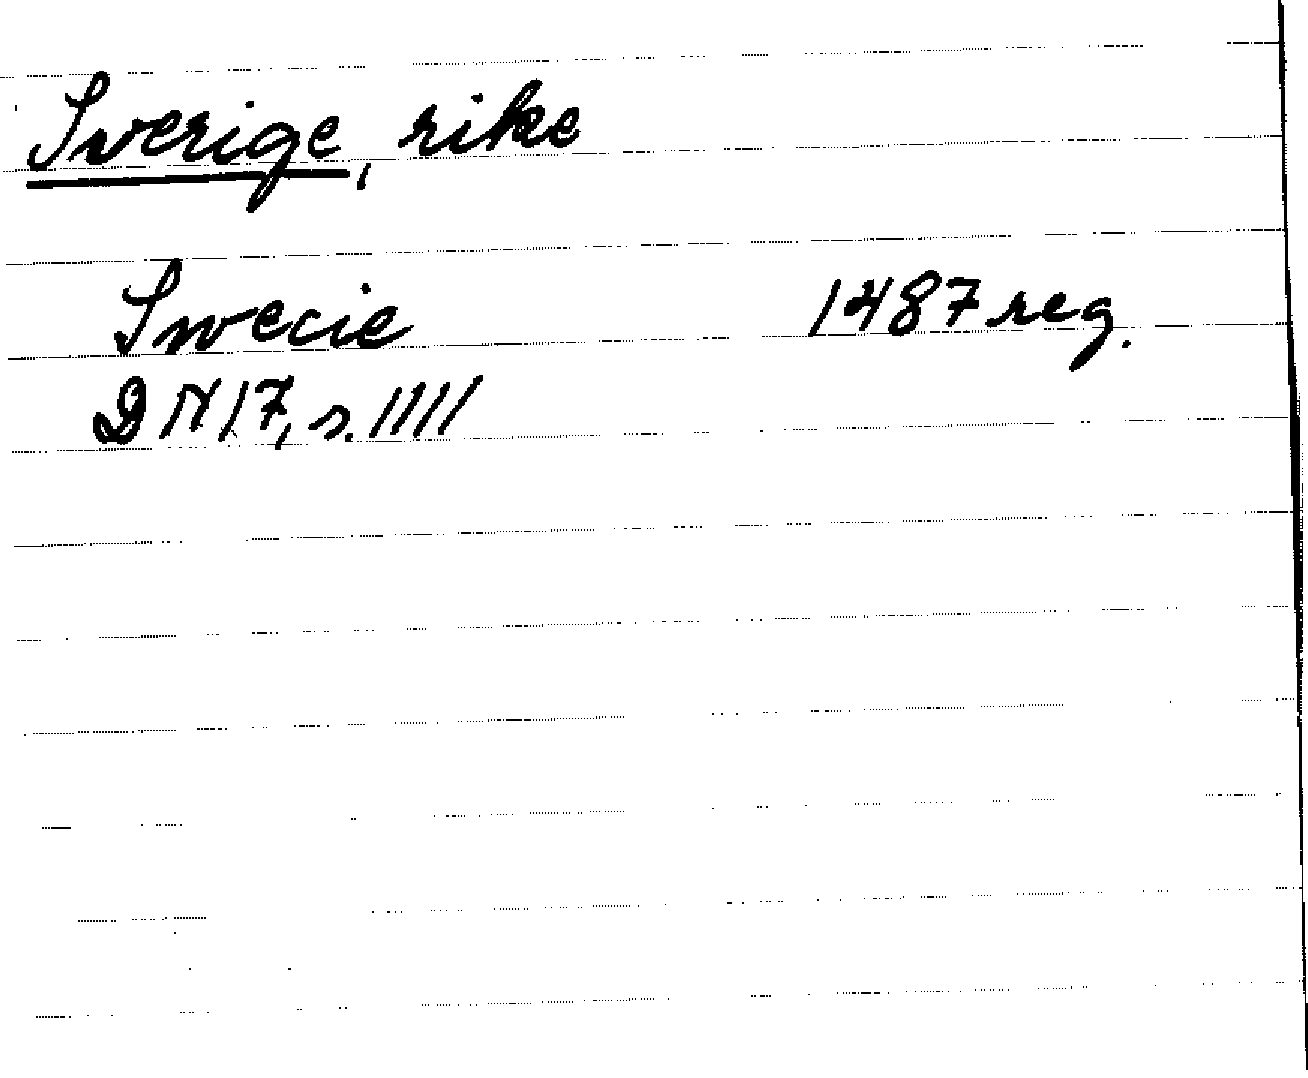 Sverige, rike
Swecie 1487 reg.
DN 17, s. 1111